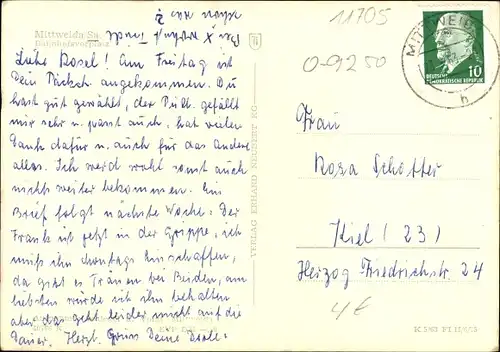 Mittweida Sa.
Bahnhofsvorplatz
Liebe Rosel! Am Freitag ist
Dein Päcksch. angekommen. Du
hast gut gewählt, der Pulli gefällt
mir sehr u. passt auch, hat vielen
Dank dafür u. auch für das Andere
alles. Ich werd wohl sonst auch
nichts weiter bekommen. Ein
Brief folgt nächste Woche. Der
Frank ist jetzt in der Grippe, ich
muß ihn Sonntags hinschaffen,
da gibt es Tränen bei Beiden, am
liebsten würde ich ihn behalten
aber das geht leider nicht auf die
Dauer. Herzl. Grüße Deine
VERLAG ERHARD NEUBERT KG
11705
0-9250
MITTWEIDA
b
DEUTSCHE
DEMOKRATISCHE REPUBLIK
10
Frau
Rosa Schotter
Kiel (23)
Herzog Friedrichstr. 24
4€